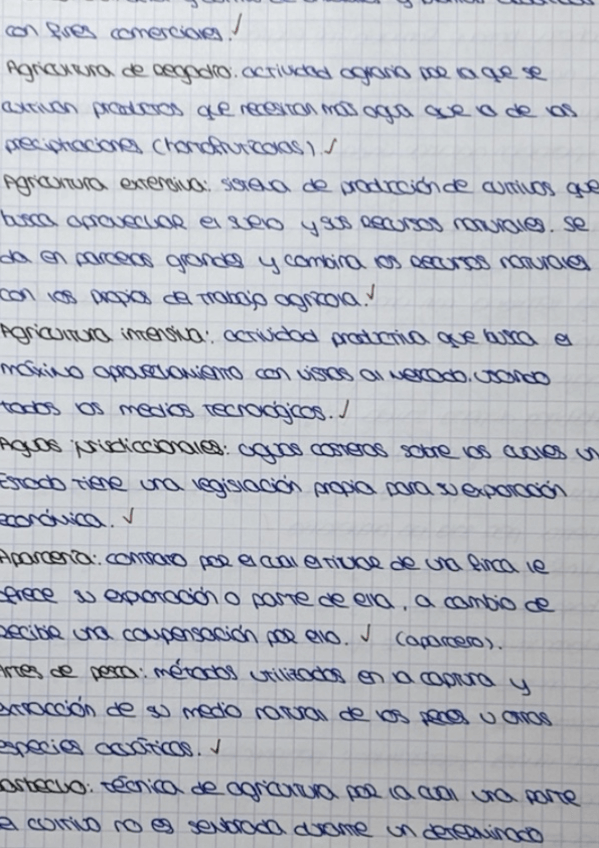 con fines comerciales. ✓
Agricultura de regadío: actividad agraria por la que se
cultivan productos que necesitan más agua que la de las
precipitaciones (hortofrutícolas). ✓
Agricultura extensiva: sistema de producción de cultivos que
busca aprovechar el suelo y sus recursos naturales. Se
da en parcelas grandes y combina los recursos naturales
con los propios de trabajo agrícola. ✓
Agricultura intensiva: actividad productiva que busca el
máximo aprovechamiento con vistas al mercado. Usando
todos los medios tecnológicos. ✓
Aguas jurisdiccionales: aguas costeras sobre las cuales un
Estado tiene una legislación propia para su explotación
económica. ✓
Aparcería: contrato por el cual el titular de una finca le
ofrece su explotación o parte de ella, a cambio de
recibir una compensación por ello. ✓ (aparcero).
Artes de pesca: métodos utilizados en la captura y
extracción de su medio natural de los peces u otras
especies acuáticas. ✓
Barbecho: técnica de agricultura por la cual una parte
el cultivo no es sembrada durante un determinado